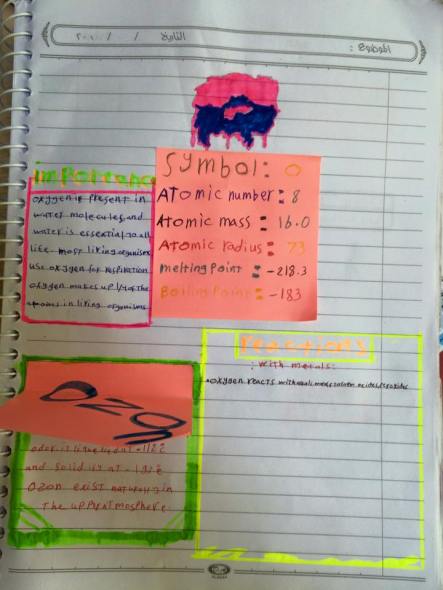 الموضوع :
التاريخ / / ٢٠
importance
oxygen is present in
water molecules and
water is essential to all
life. most living organisms
use oxygen for respiration
oxygen makes up 1/4 of the
atoms in living organisms
Symbol: O
Atomic number: 8
Atomic mass: 16.0
Atomic radius: 73
melting Point: -218.3
Boiling Point: -183
reactions
with metals:
oxygen reacts with
OZO
and solid is at
Ozon exist naturally in
The upper atmosphere